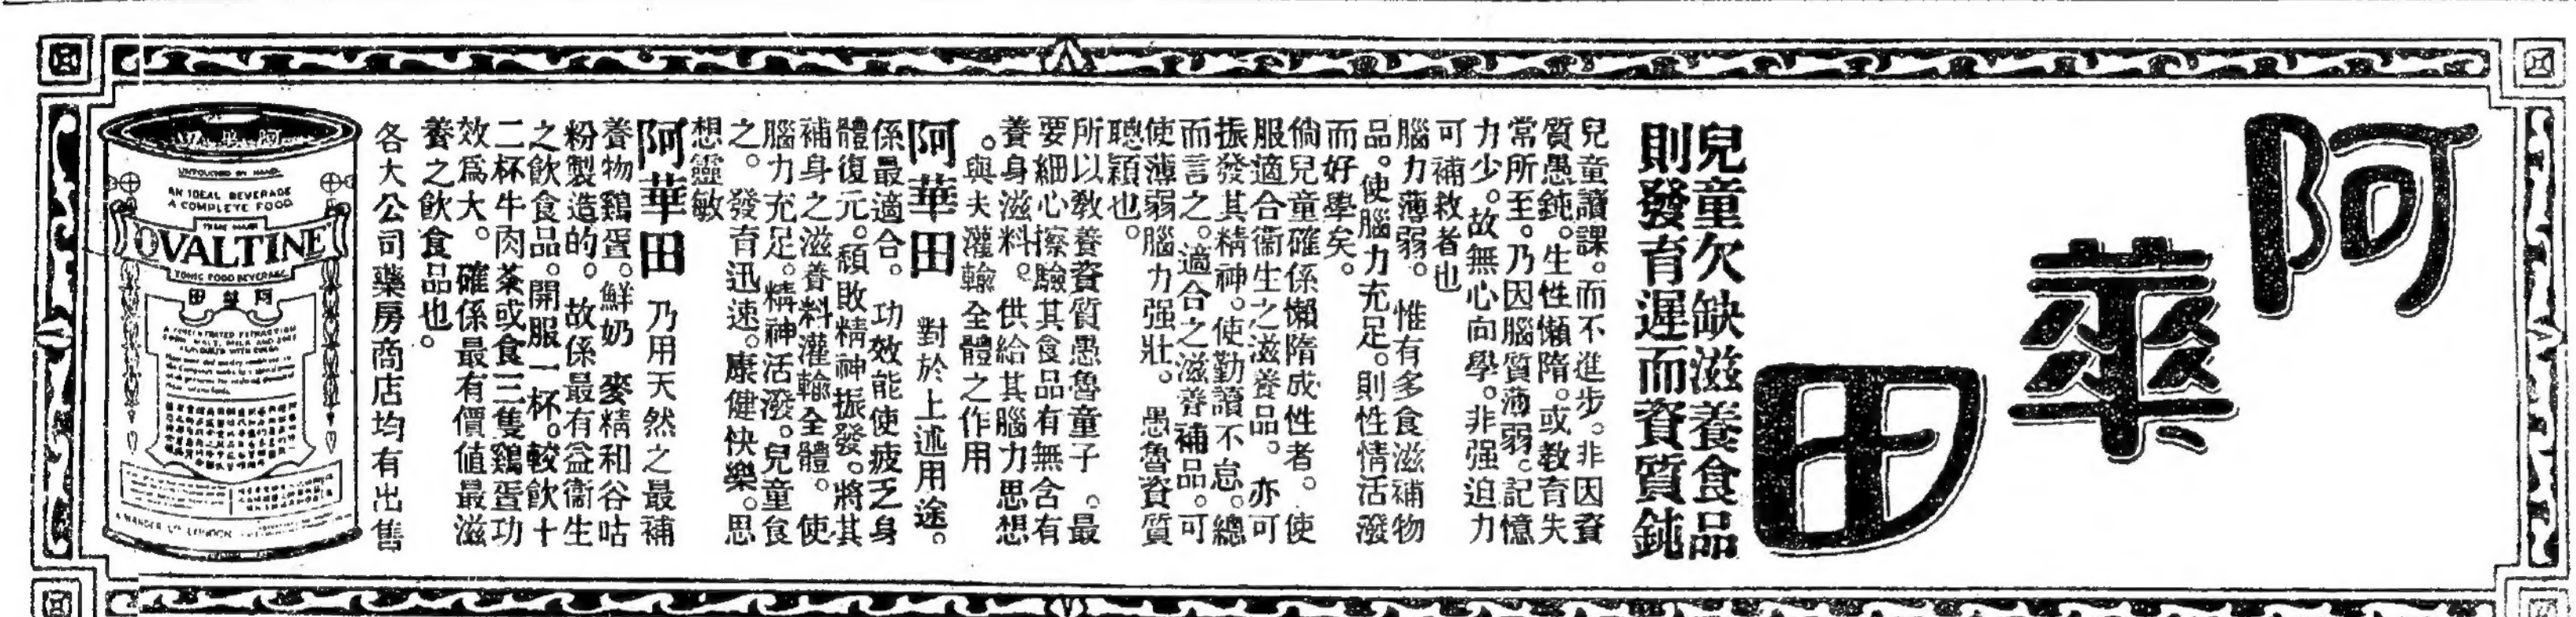 阿華田
兒童欠缺滋養食品
則發育遲而資質鈍
兒童讀課。而不進步。非因資
質愚鈍。生性懶隋。或教育失
常所至。乃因腦質沛弱。記憶
力少。故無心向學。非强迫力
可補救者也
腦力薄弱。惟有多食滋補物
品。使腦力充足。則性情活潑
而好學矣。
倘兒童確係懶隋成性者。使
服適合衞生之滋養品。亦可
振發其精神。使勤讀不怠。總
而言之。適合之滋養補品。可
使薄弱腦力强壯。愚魯資質
聰穎也。
所以敎養資質愚魯童子。最
要細心擦驗其食品有無含有
養身滋料。供給其腦力思想
。與夫灌輸全體之作用
阿華田 對於上述用途。
係最適合。功效能使疲乏身
體復元。頹敗精神振發。將其
補身之滋養料灌輸全體。使
腦力充足。精神活潑。兒童食
之。發育迅速。康健快樂。思
想靈敏
阿華田 乃用天然之最補
養物鷄蛋。鮮奶 麥精和谷咕
粉製造的。故係最有益衞生
之飲食品。開服一杯。較飲十
二杯牛肉茶或食三隻鷄蛋功
效爲大。確係最有價值最滋
養之飲食品也。
各大公司藥房商店均有出售
田華阿
UNTOUCHED BY HAND
AN IDEAL BEVERAGE
A COMPLETE FOOD
TRADE MARK
OVALTINE
TONIC FOOD BEVERAGE
田華阿
A CONCENTRATED EXTRACTION
FROM MALT, MILK AND EGGS
FLAVOURED WITH COCOA
A. WANDER LTD LONDON